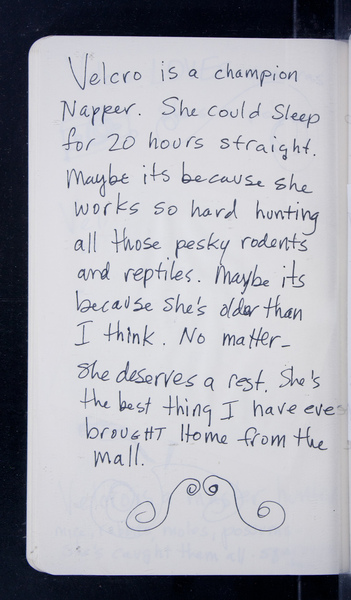 Velcro is a champion
Napper. She could Sleep
for 20 hours straight.
Maybe its because she
works so hard hunting
all those pesky rodents
and reptiles. Maybe its
because She's older than
I think. No matter-
She deserves a rest. She's
the best thing I have eve
brought Home from the
mall.